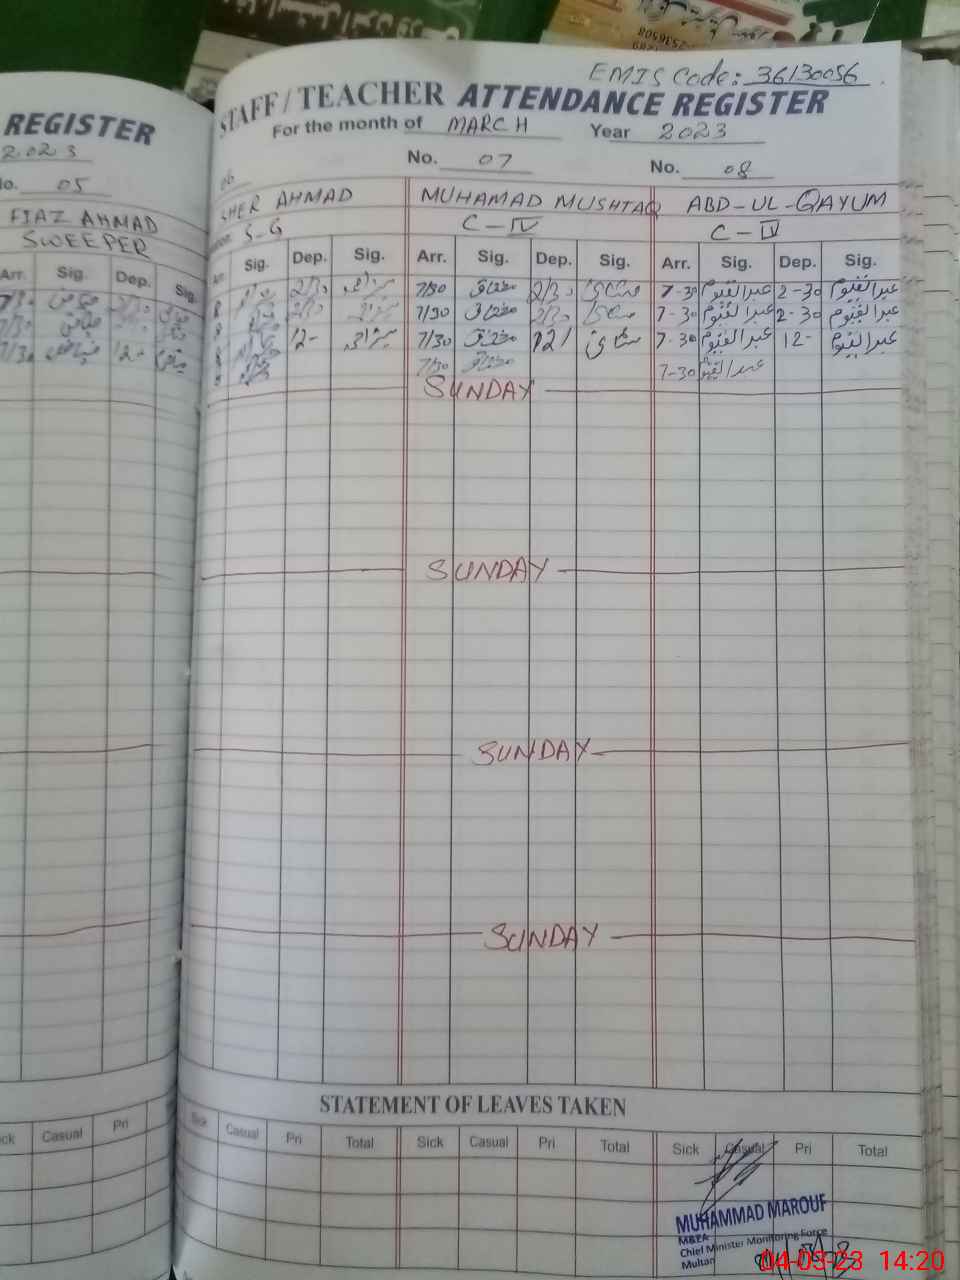 2536508
EMIS Code: 36130056
REGISTER
2023
No. 05
FIAZ AHMAD
SWEEPER
Arr. Sig. Dep. Sig.
7/30
7/30
7/30 12-
STAFF / TEACHER ATTENDANCE REGISTER
For the month of MARCH Year 2023
06 No. 07 No. 08
SHER AHMAD MUHAMAD MUSHTAQ ABD-UL-QAYUM
S-G C-IV C-IV
Sig. Dep. Sig. Arr. Sig. Dep. Sig. Arr. Sig. Dep. Sig.
8 2/30 7/30 مشتاق 2/30 مشتاق 7-30 عبدالقیوم 2-30 عبدالقیوم
8 2/30 7/30 مشتاق 2/30 مشتاق 7-30 عبدالقیوم 2-30 عبدالقیوم
8 12- 7/30 مشتاق 12/ مشتاق 7-30 عبدالقیوم 12- عبدالقیوم
8 7/30 مشتاق 7-30 عبدالقیوم
SUNDAY
SUNDAY
SUNDAY
SUNDAY
STATEMENT OF LEAVES TAKEN
Sick Casual Pri
Sick Casual Pri Total Sick Casual Pri Total Sick Casual Pri Total
MUHAMMAD MAROUF
M&EA
Chief Minister Monitoring Force
Multan
04-03-23 14:20